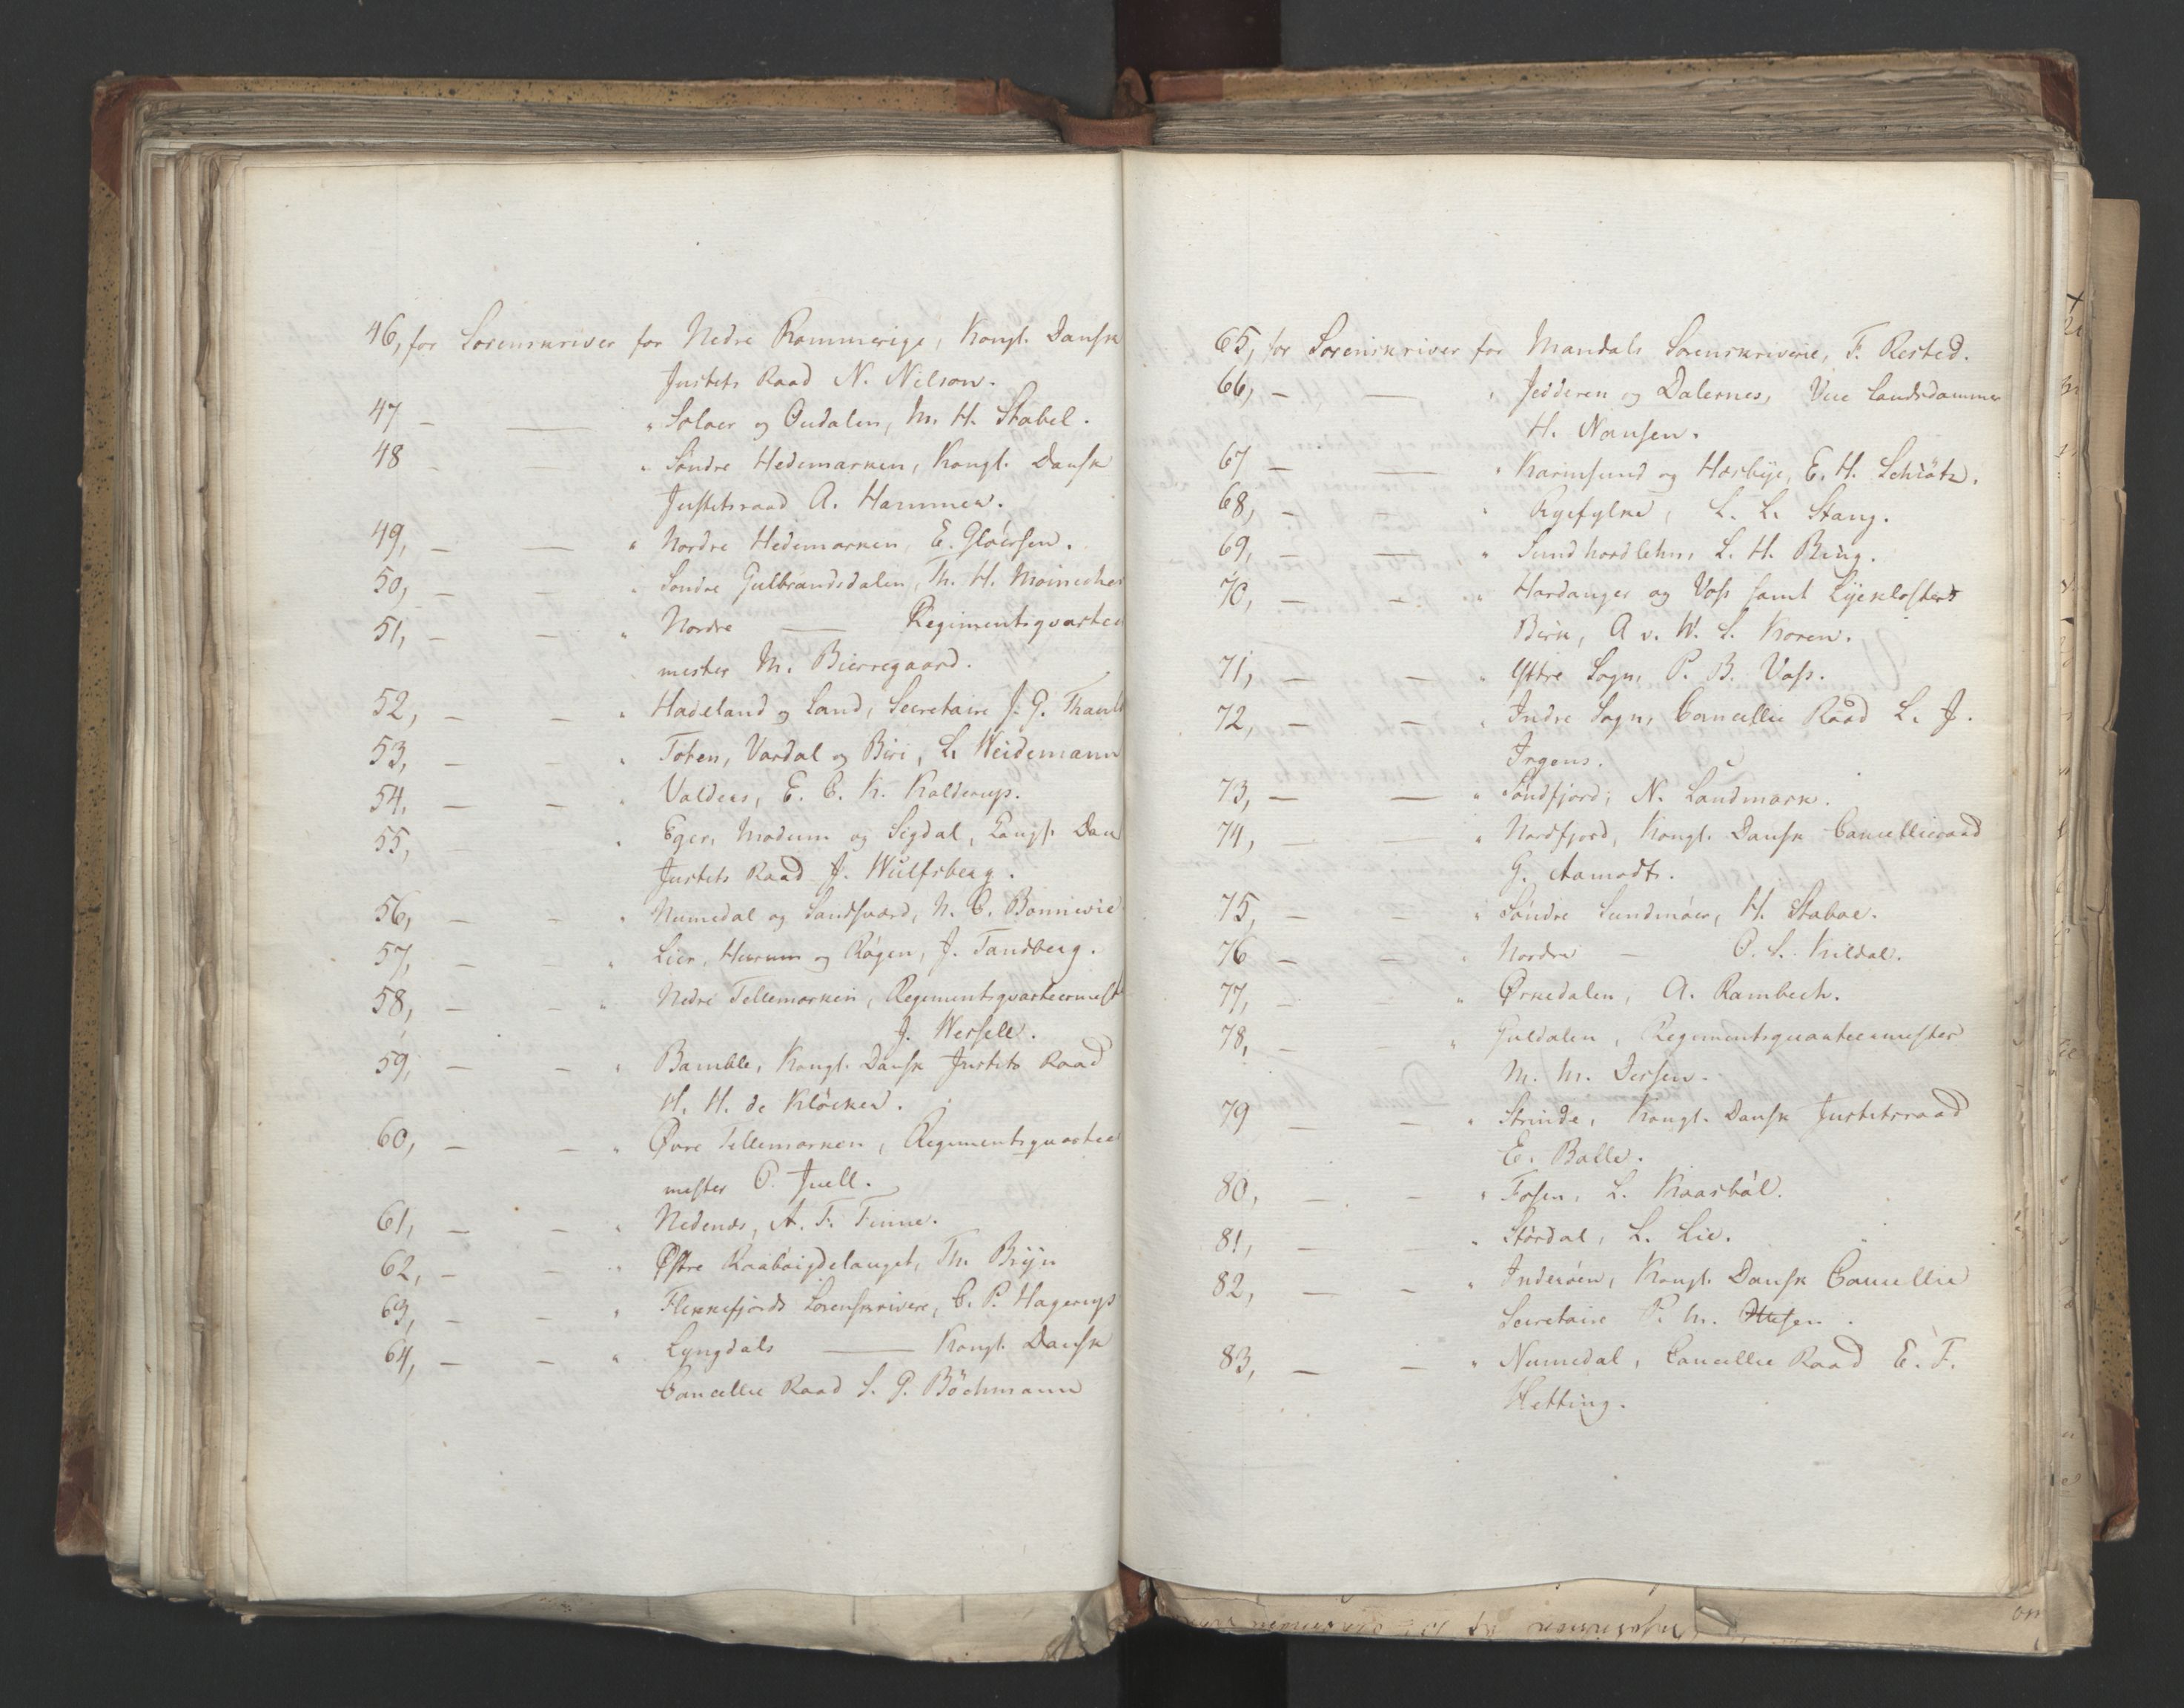 46, for Sorenskriver for Nedre Rommerige, Kongl. Dansk
Justits Raad N. Nilson.
47 — — " Soloer og Oudalen, M. H. Stabel.
48 - — " Søndre Hedemarken, Kongl. Dansk
Justitsraad A. Hammer.
49, — — " Nordre Hedemarken, E. Gløersen.
50, — — " Søndre Gulbrandsdalen, Th. H. Moinichen
51, — — " Nordre — Regimentsqvarteer
mester M. Bierregaard.
52, — — " Hadeland og Land, Secretaire J. G. Thaulo
53, — — " Toten, Vardal og Biri, L. Weidemann
54, — — " Valders, E. C. K. Kalderup.
55, — — " Eger, Modum og Sigdal, Kongl. Dan
Justits Raad J. Wulfsberg.
56, — — " Numedal og Sandsværd, N. C. Bonnevie
57, — — " Lier, Hurum og Røgen, J. Tandberg.
58, — — " Nedre Tellemarken, Regimentsqvarteermest
J. Wessel.
59, — — " Bamble, Kongl. Dansk Justits Raad
H. H. de Kløcker.
60, — — " Øvre Tellemarken, Regimentsqvarteer
mester O. Juell.
61, — — " Nedenæs, A. F. Finne.
62, — — " Østre Raabøigdelauget, Th. Bryn
63, — — " Flekkefjords Sorenskrivere, C. P. Hagerup
64, — — " Lyngdals — Kongl. Dansk
Cancellie Raad S. G. Böchmann
65, for Sorenskriver for Mandals Sorenskriverie, F. Rested.
66, — — " Jedderen og Dalernes, Vice Landsdommer
H. Nansen.
67 — — " Karmsund og Hæsbye, E. H. Schiøtz.
68, — — " Ryefylke, L. L. Stang.
69, — — " Sundhordlehn, L. H. Bing.
70, — — " Hardanger og Voss samt Lyeklosters
Birk, A v. W. S. Koren.
71, — — " Yttre Sogn, P. B. Voss.
72, — — " Indre Sogn, Cancellie Raad L. J.
Irgens.
73, — — " Søndfjord, N. Landmark.
74, — — " Nordfjord, Kongl. Dansk Cancellieraad
G. Aamodt.
75, — — " Søndre Sundmøer, H. Staboe.
76 — — " Nordre — O. S. Kildal.
77, — " Ørkedalen, A. Rambech.
78, — " Guldalen, Regimentsquarteermester
M. M. Jersen.
79 — — " Strinde, Kongl. Dansk Justitsraad
E. Balle.
80, — — " Fosen, L. Kaasbøl.
81, — " Størdal, L. Lie.
82, — — " Inderøen, Kongl. Dansk Cancellie
Secretaire P. M.
83, — — " Numedal, Cancellie Raad E. F.
Hetting.